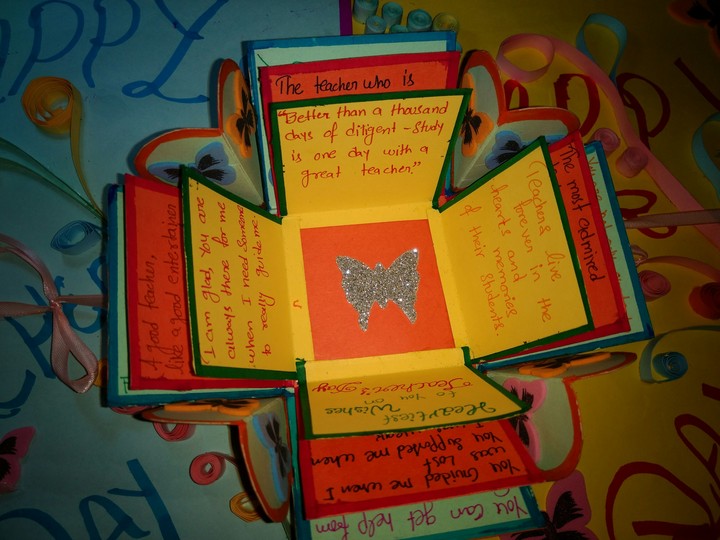 The teacher who is
"Better than a thousand
days of diligent - Study
is one day with a
great teacher."
The most admired
"Teachers live
forever in the
hearts and
memories
of their students.
A good teacher,
like a good entertainer
I am glad, You are
always there for me
when I need someone
to really guide me.
Heartiest
Wishes
to You on
Teacher's Day
You Guided me when I
was lost
You supported me when
You can get help from
PPY
DAY